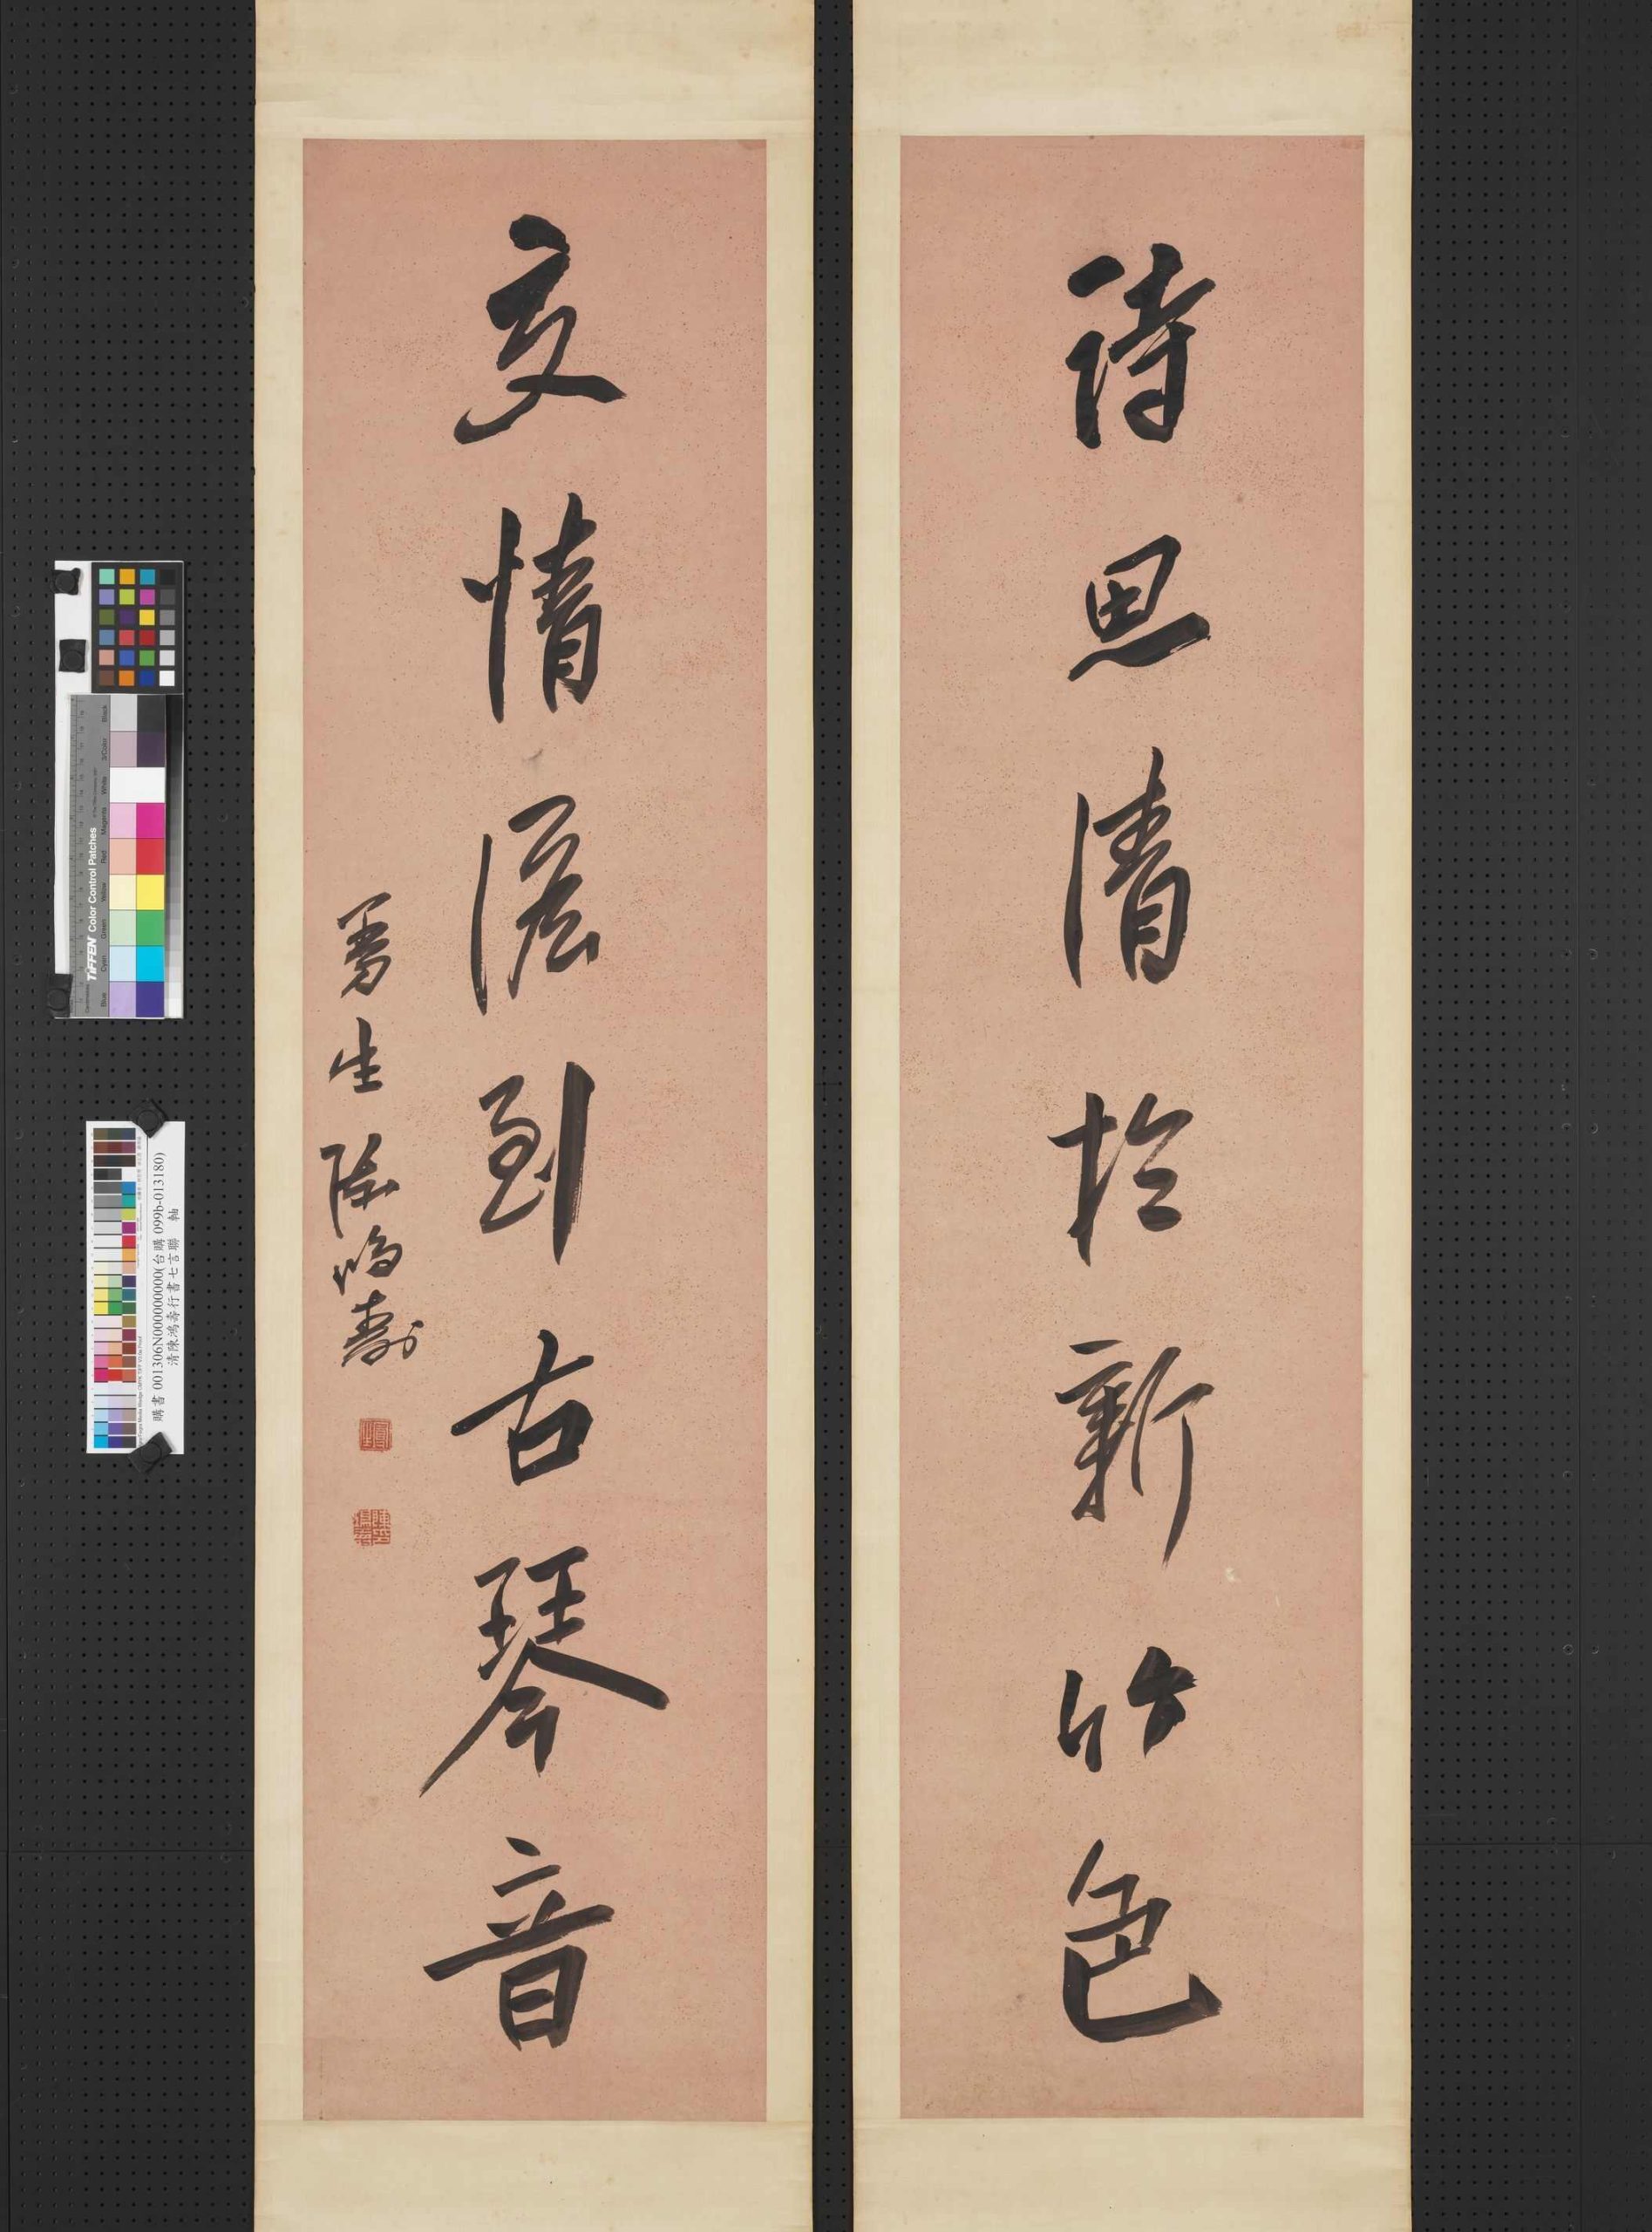 詩思清於新竹色
交情澹到古琴音
曼生陳鴻壽
購書 001306N000000000(台購 099b-013180)
清陳鴻壽行書七言聯　軸
TIFFEN Color Control Patches
Blue Cyan Green Yellow Red Magenta White 3/Color Black